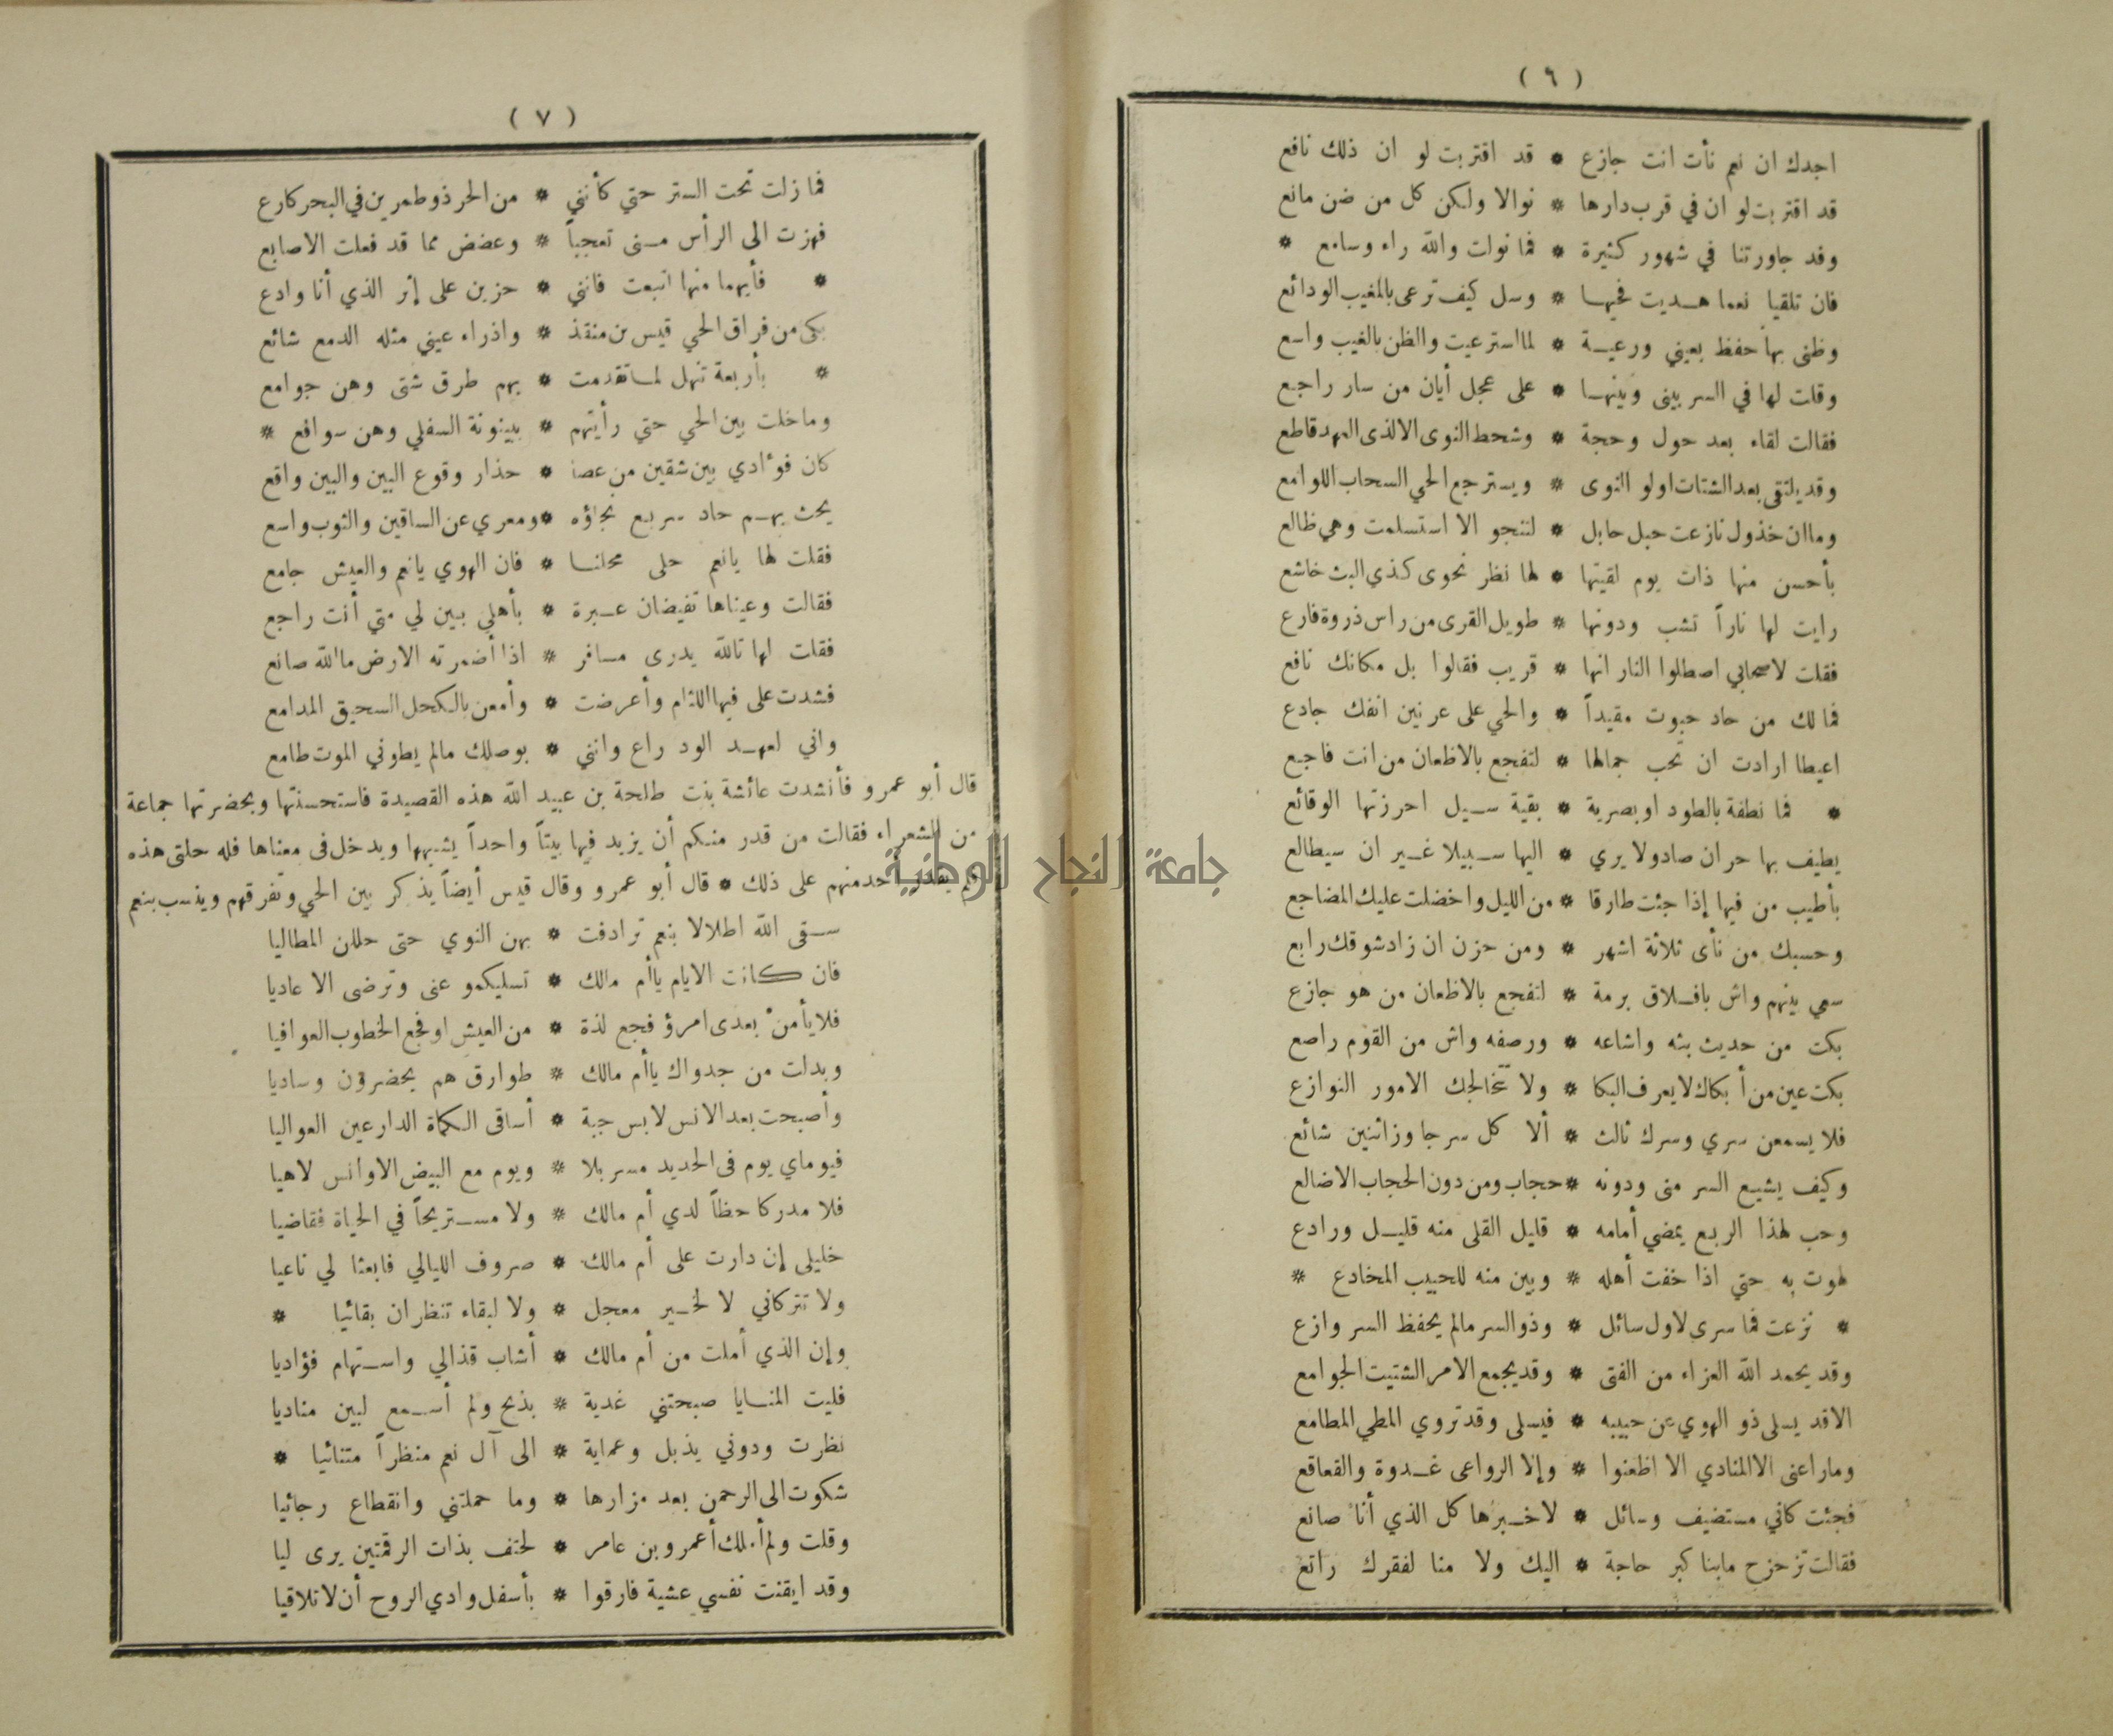 ( ٦ )
اجدك ان نعم نأت انت جازع * قد اقتربت لو ان ذلك نافع
قد اقتربت لو ان في قرب دارها * نوالا ولكن كل من ضن مانع
وقد جاورتنا في شهور كثيرة * فما نوات والله راء وسامع *
فان تلقيا نعما هديت فحيها * وسل كيف ترعى بالمغيب الودائع
وظنى بها حفظ بعيني ورعية * لما استرعيت والظن بالغيب واسع
وقلت لها في السر بينى وبينها * على عجل أيان من سار راجع
فقالت لقاء بعد حول وحجة * وشحط النوى الا لذى العهد قاطع
وقد يلتقى بعد الشتات اولو النوى * ويسترجع الحي السحاب اللوامع
وما ان خذول نازعت حبل حابل * لتنجو الا استسلمت وهي ظالع
بأحسن منها ذات يوم لقيتها * لها نظر نحوى كذي البث خاشع
رايت لها ناراً تشب ودونها * طويل القرى من راس ذروة فارع
فقلت لاصحابي اصطلوا النار انها * قريب فقالوا بل مكانك نافع
فما لك من حاد حبوت مقيداً * والحي على عرنين انفك جادع
اعيطا ارادت ان تخب جمالها * لتفجع بالاظعان من انت فاجع
* فما نطفة بالطود او بصرية * بقية سيل احرزتها الوقائع
يطيف بها حران صاد ولا يري * اليها سبيلا غير ان سيطالع
بأطيب من فيها إذا جئت طارقا * من الليل واخضلت عليك المضاجع
وحسبك من نأى ثلاثة اشهر * ومن حزن ان زاد شوقك رابع
سعي بينهم واش بافلاق برمة * لتفجع بالاظعان من هو جازع
بكت من حديث بثه واشاعه * ورصفه واش من القوم راصع
بكت عين من أبكاك لا يعرف البكا * ولا تتخالجك الامور النوازع
فلا يسمعن سري وسرك ثالث * ألا كل سر جاوز اثنين شائع
وكيف يشيع السر منى ودونه * حجاب ومن دون الحجاب الاضالع
وحب لهذا الربع يمضي أمامه * قليل القلى منه قليل ورادع
لهوت به حتي اذا خفت أهله * وبين منه للحبيب المخادع *
* نزعت فما سرى لاول سائل * وذو السر مالم يحفظ السر وازع
وقد يحمد الله العزاء من الفتى * وقد يجمع الامر الشتيت الجوامع
الا قد يسلى ذو الهوي عن حبيبه * فيسلى وقد تروي المطي المطامع
وما راعنى الا المنادي الا اظعنوا * وإلا الرواعى غدوة والقعاقع
فجئت كاني مستضيف وسائل * لاخبرها كل الذي أنا صانع
فقالت تزحزح مابنا كبر حاجة * اليك ولا منا لفقرك راتع
( ٧ )
فما زلت تحت الستر حتي كأنني * من الحر ذو طمرين في البحر كارع
فهزت الى الرأس منى تعجباً * وعضض مما قد فعلت الاصابع
* فأيهما منها اتبعت فانني * حزين على إثر الذي أنا وادع
بكى من فراق الحي قيس بن منقذ * واذراء عيني مثله الدمع شائع
* بأربعة تنهل لما تقدمت * بهم طرق شتى وهن جوامع
وما خلت بين الحي حتي رأيتهم * ببينونة السفلي وهن سوافع *
كان فؤادي بين شقين من عصا * حذار وقوع البين والبين واقع
يحث بهم حاد سريع نجاؤه * ومعري عن الساقين والثوب واسع
فقلت لها يانعم حلى محلنا * فان الهوي يانعم والعيش جامع
فقالت وعيناها تفيضان عبرة * بأهلي بين لي متي أنت راجع
فقلت لها تالله يدرى مسافر * اذا أضمرته الارض ما الله صانع
فشدت على فيها اللثام وأعرضت * وأمعن بالكحل السحيق المدامع
واني لعهد الود راع وانني * بوصلك مالم يطوني الموت طامع
قال أبو عمرو فأنشدت عائشة بنت طلحة بن عبيد الله هذه القصيدة فاستحسنتها وبحضرتها جماعة
من الشعراء فقالت من قدر منكم أن يزيد فيها بيتاً واحداً يشبهها ويدخل فى معناها فله حلتى هذه
فلم يقدر أحد منهم على ذلك * قال أبو عمرو وقال قيس أيضاً يذكر بين الحي وتفرقهم وينسب بنعم
سقى الله اطلالا بنعم ترادفت * بهن النوي حتى حللن المطاليا
فان كانت الايام ياأم مالك * تسليكمو عنى وترضى الاعاديا
فلا يأمن بعدى امرؤ فجع لذة * من العيش او فجع الخطوب العوافيا
وبدلت من جدواك ياأم مالك * طوارق هم يحضرون وساديا
وأصبحت بعد الانس لابس جبة * أساقى الكماة الدارعين العواليا
فيوماي يوم فى الحديد مسربلا * ويوم مع البيض الاوانس لاهيا
فلا مدركا حظاً لدي أم مالك * ولا مستريحاً في الحياة فقاضيا
خليلى إن دارت على أم مالك * صروف الليالي فابعثا لي ناعيا
ولا تتركاني لا لخير معجل * ولا لبقاء تنظران بقائيا *
وإن الذي أملت من أم مالك * أشاب قذالي واستهام فؤاديا
فليت المنايا صبحتني غدية * بذبح ولم أسمع لبين مناديا
نظرت ودوني يذبل وعماية * الى آل نعم منظراً متنائيا *
شكوت الى الرحمن بعد مزارها * وما حملتني وانقطاع رجائيا
وقلت ولم أملك أعمرو بن عامر * لحتف بذات الرقمتين يرى ليا
وقد ايقنت نفسي عشية فارقوا * بأسفل وادي الروح أن لا تلاقيا
جامعة النجاح الوطنية